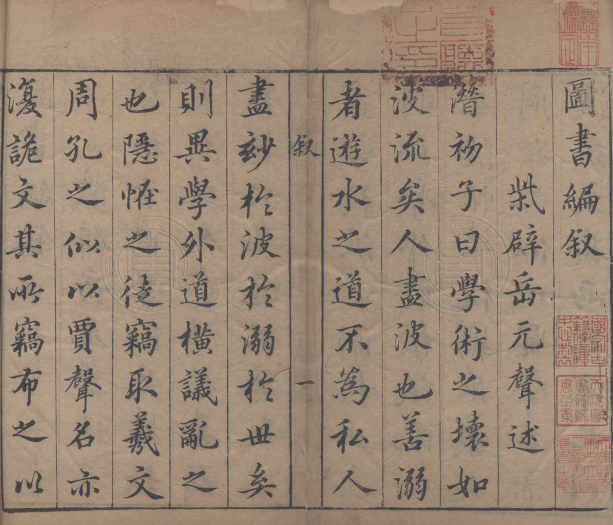 圖書編叙
紫辟岳元聲述
潛初子曰學術之壞如
波流矣人盡波也善溺
者遊水之道不為私人
叙
一
盡玅於波於溺於世矣
則異學外道橫議亂之
也隱恠之徒竊取羲文
周孔之似以賈聲名亦
復詭文其所竊布之以